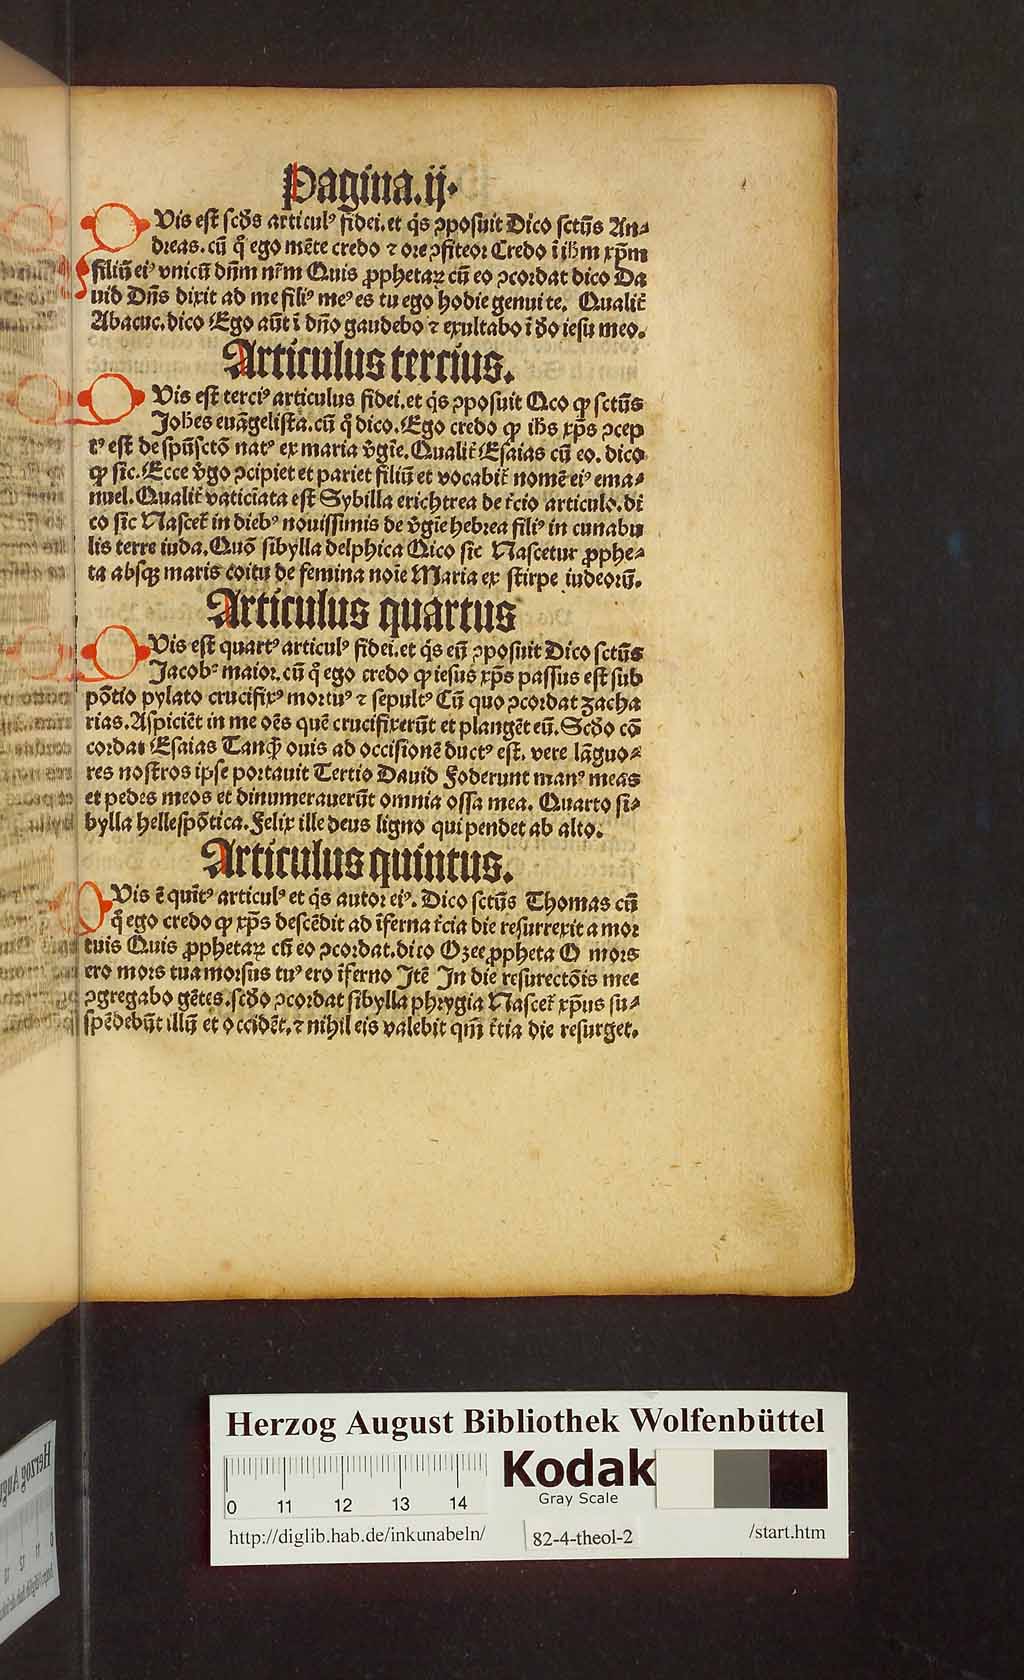 Pagina.ij.
Quis est scđs articulꝰ fidei.et q̇s ꝓposuit Dico sctūs An⸗
dreas.cū q̊ ego mēte credo ⁊ ore ꝯfiteor Credo ī ihm xp̄m
filiū eiꝰ vnicū dn̄m nr̄m Quis ꝓphetaꝝ cū eo ꝯcordat dico Da
uid Dn̄s dixit ad me filiꝰ meꝰ es tu ego hodie genui te. Qualit̄
Abacuc.dico Ego aūt ī dn̄o gaudebo ⁊ exultabo ī đo iesu meo.
Articulus tercius.
Quis est terciꝰ articulus fidei.et q̇s ꝯposuit Dico ꝙ sctūs
Joħes euāgelista.cū q̊ dico.Ego credo ꝙ ihs xp̄s ꝯcep
tꝰ est de spūsctō natꝰ ex maria v̄gīe.Qualit̄ Esaias cū eo.dico
ꝙ sic.Ecce v̄go ꝯcipiet et pariet filiū et vocabit̄ nomē eiꝰ ema⸗
nuel.Qualit̄ vaticīata est Sybilla erichtrea de t̄cio articulo.di
co sic Nascet̄ in diebꝰ nouissimis de v̄gīe hebrea filiꝰ in cunabu
lis terre iuda.Quō sibylla delphica Dico sic Nascetur ꝓphe⸗
ta absqꝫ maris coitu de femina noīe Maria ex stirpe iudeorū.
Articulus quartus
Quis est quartꝰ articulꝰ fidei.et q̇s eū ꝯposuit Dico sctūs
Jacobꝰ maior.cū q̊ ego credo ꝙ iesus xp̄s passus est sub
pōtio pylato crucifixꝰ mortuꝰ ⁊ sepultꝰ Cū quo ꝯcordat zacha
rias.Aspiciēt in me oēs quē crucifixerūt et plangēt eū.Scđo cō
cordat Esaias Tanꝙ̄ ouis ad occisionē ductꝰ est. vere lāguo⸗
res nostros ipse portauit Tertio Dauid Foderunt manꝰ meas
et pedes meos et dinumerauerūt omnia ossa mea. Quarto si⸗
bylla hellespōtica.Felix ille deus ligno qui pendet ab alto.
Articulus quintus.
Quis ē quītꝰ articulꝰ et q̇s autor eiꝰ. Dico sctūs Thomas cū
q̊ ego credo ꝙ xp̄s descēdit ad īferna t̄cia die resurrexit a mor
tuis Quis ꝓphetaꝝ cū eo ꝯcordat.dico Ozee ꝓpheta O mors
ero mors tua morsus tuꝰ ero īferno Jtē Jn die resurectōis mee
ꝯgregabo gētes.scđo ꝯcordat sibylla phrygia Nascet̄ xp̄us su⸗
spēdebūt illū et occidēt.⁊ nihil eis valebit qm̄ t̄tia die resurget.
Herzog August Bibliothek Wolfenbüttel
0 11 12 13 14
Kodak
Gray Scale
http://diglib.hab.de/inkunabeln/ 82-4-theol-2 /start.htm